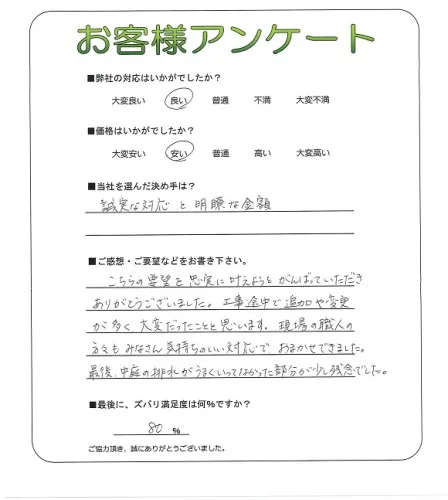 お客様アンケート
■弊社の対応はいかがでしたか?
大変良い 良い 普通 不満 大変不満
■価格はいかがでしたか?
大変安い 安い 普通 高い 大変高い
■当社を選んだ決め手は?
誠実な対応と明瞭な金額
■ご感想・ご要望などをお書き下さい。
こちらの要望を忠実に叶えようとがんばっていただき
ありがとうございました。工事途中で追加や変更
が多く、大変だったことと思います。現場の職人の
方々もみなさん気持ちのいい対応で、おまかせできました。
最後、中庭の排水がうまくいってなかった部分が少し残念でした。
■最後に、ズバリ満足度は何%ですか?
80 %
ご協力頂き、誠にありがとうございました。